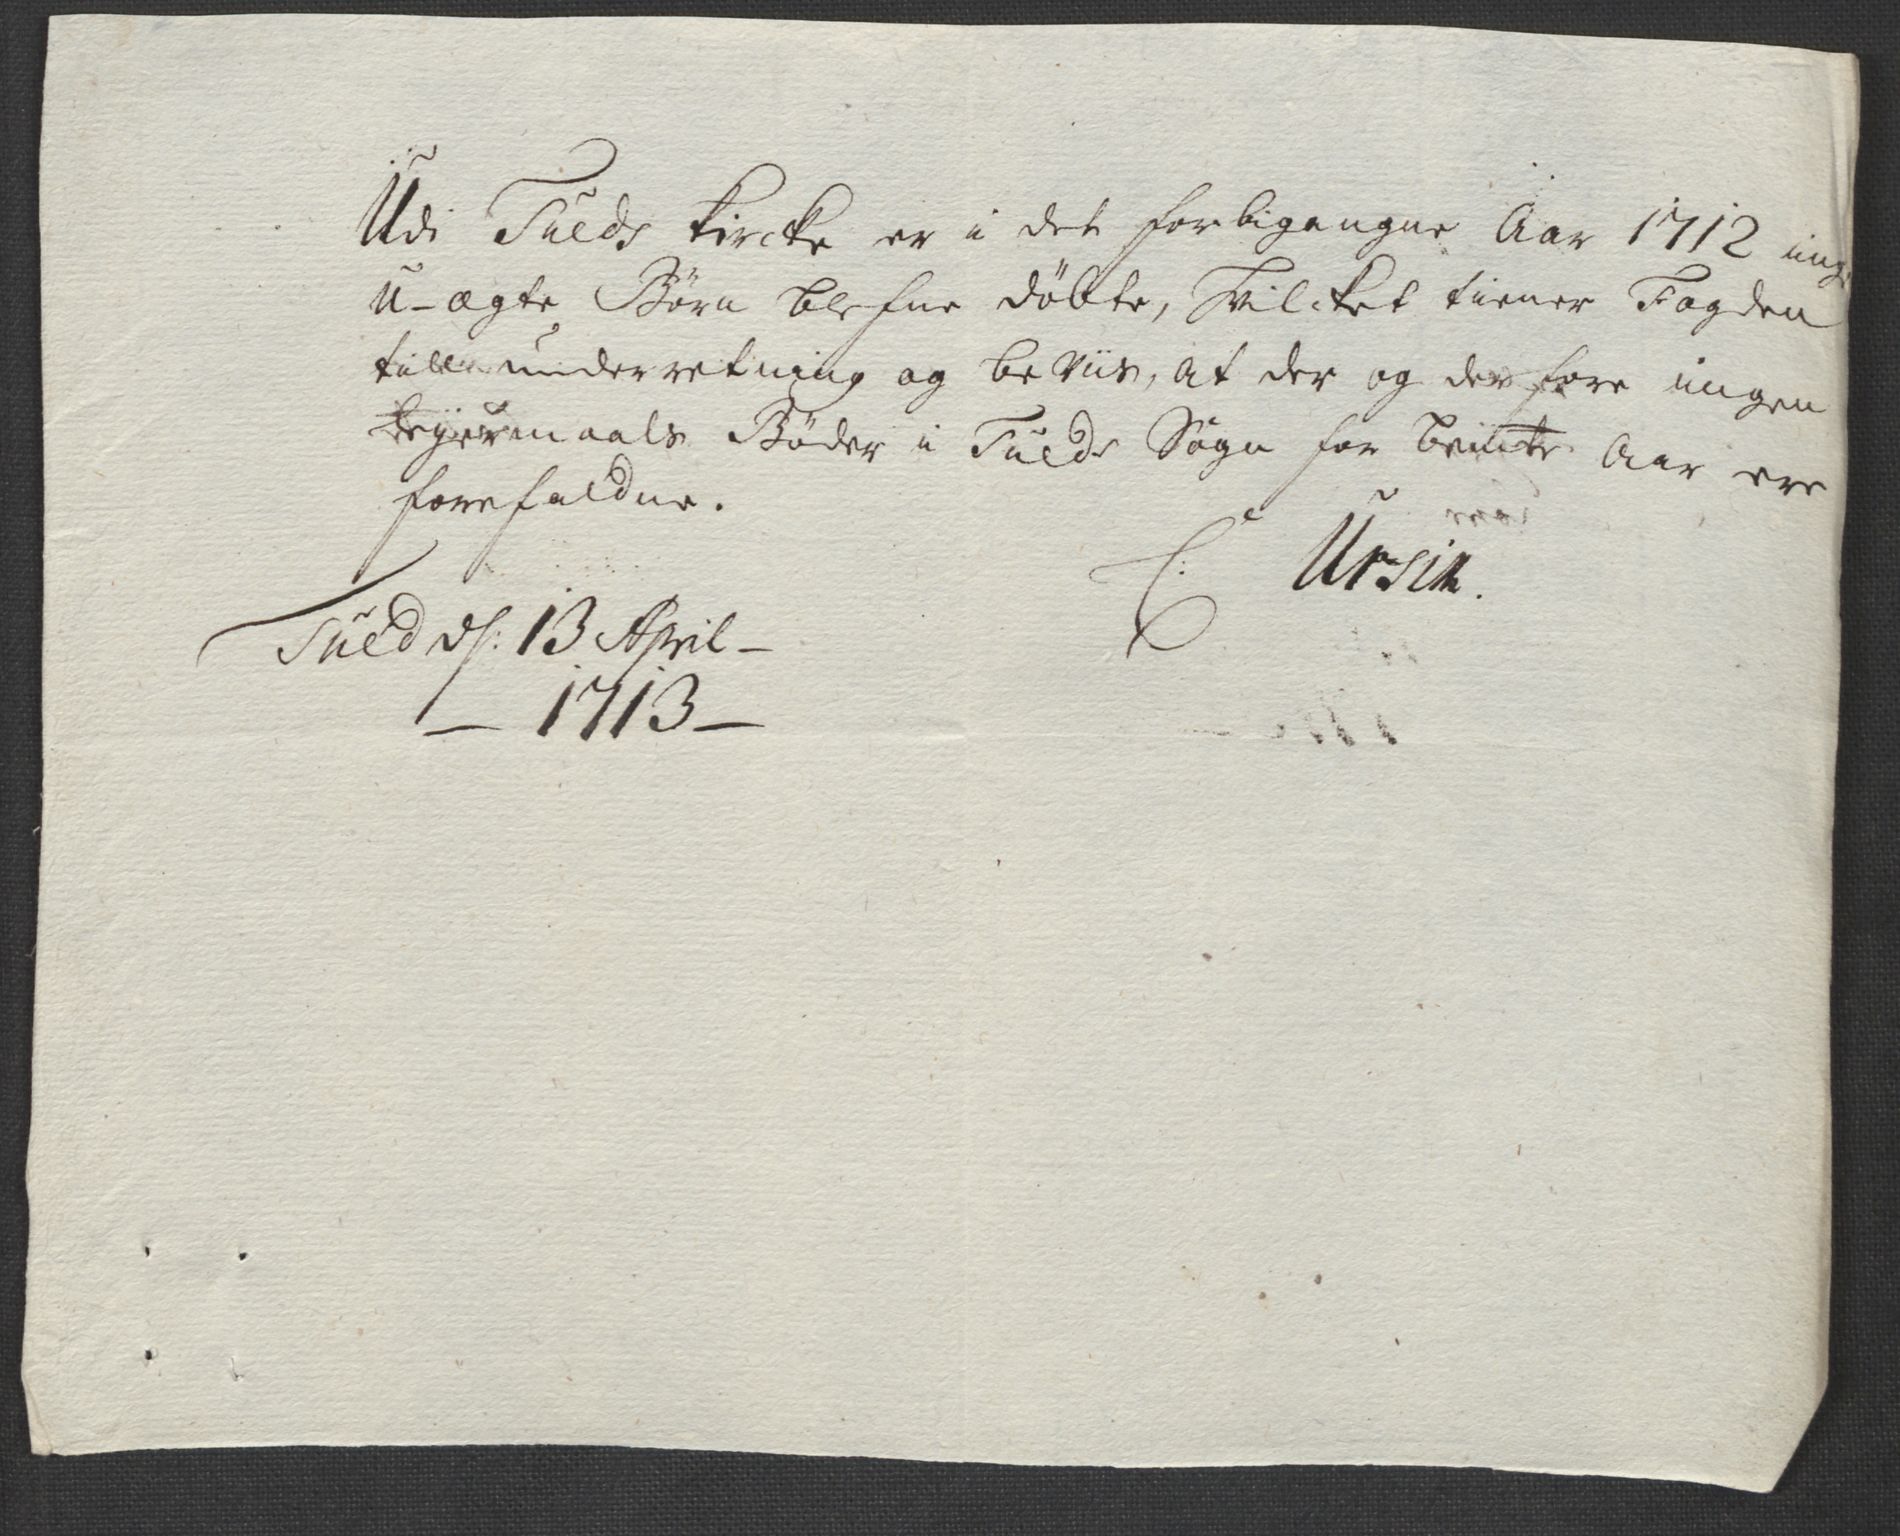 Udi Tueds kircke er i det forbigangne Aar 1712 ing:
u-ægte Børn blefne döbte, Hvilcket tiener Fogden
till underretning og beviis, at der og derfore ingen
Leyermaals Bøder i Tueds Sogn for bemte Aar ere
forefaldne.
C: Ursin.
Tued ds: 13 April -
- 1713 -